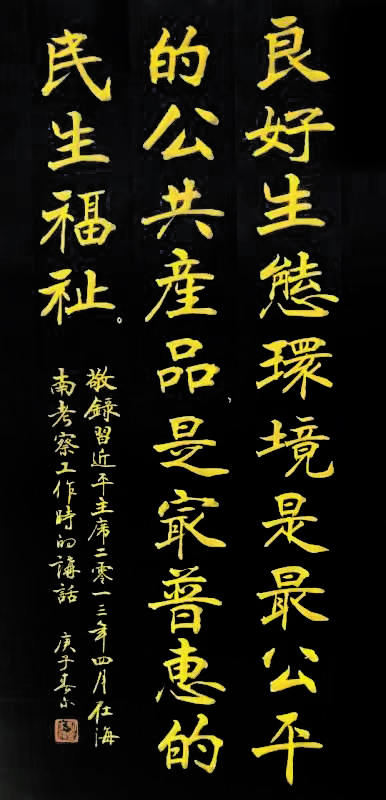 良好生態環境是最公平
的公共産品，是寂普惠的
民生福祉。
敬錄習近平主席二零一三年四月在海
南考察工作時的講話
庚子春尔